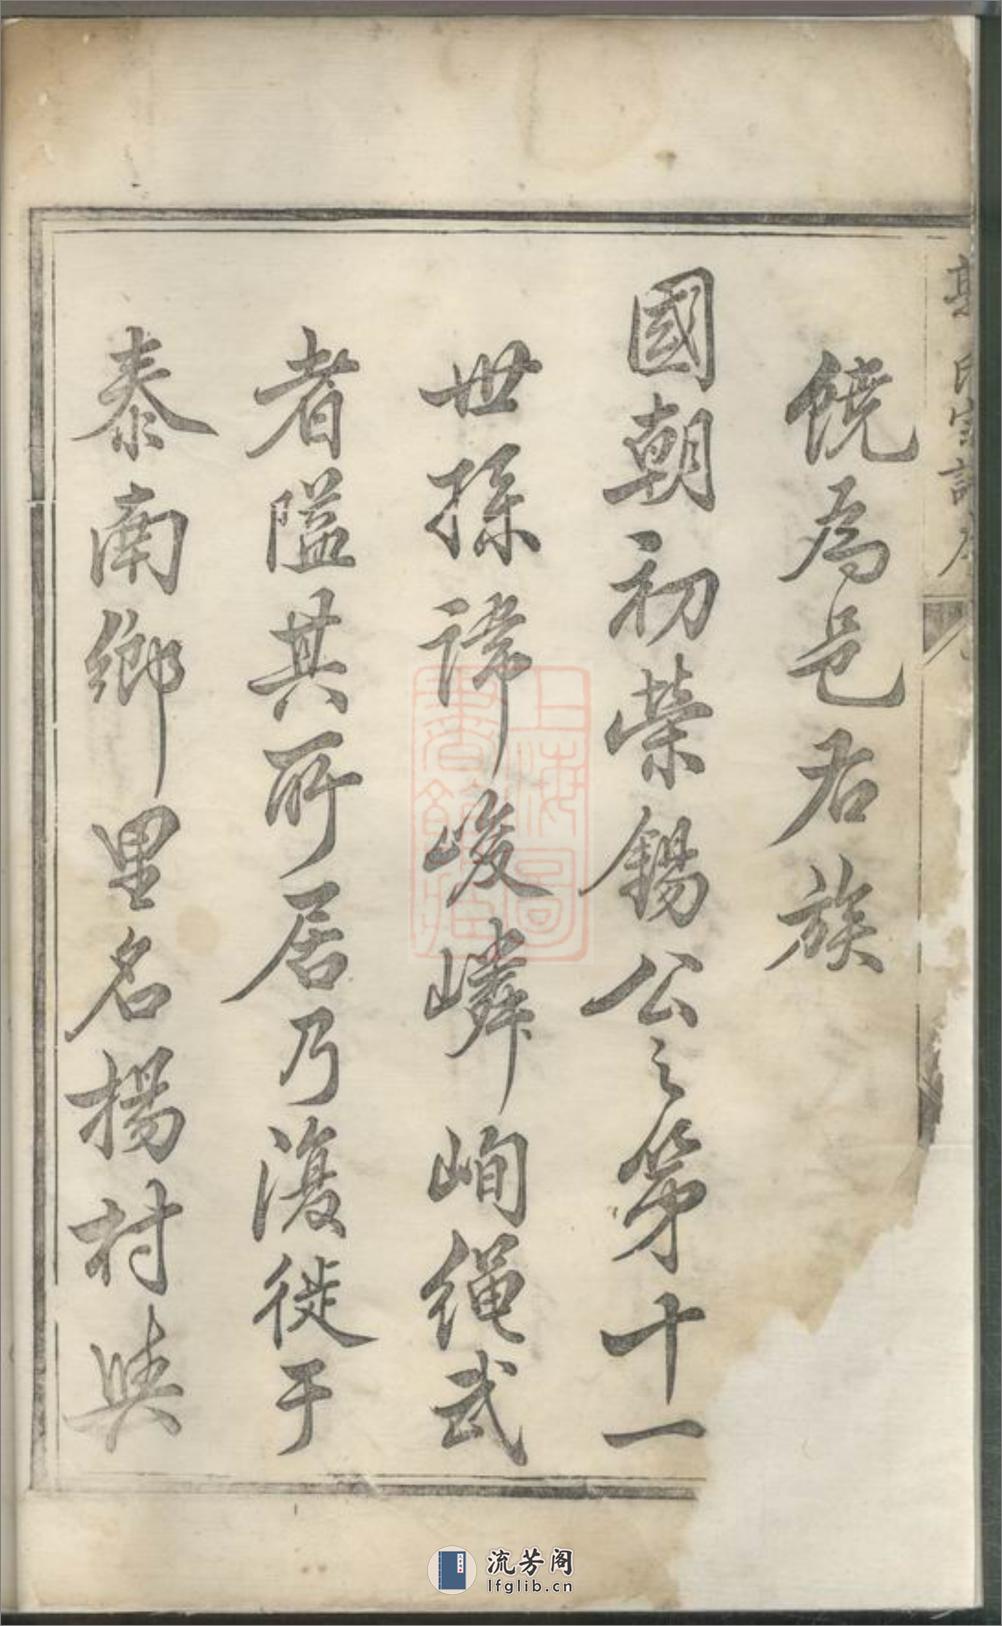 氏宗譜序
饒為邑右族
國朝初榮錫公之第十一
世孫諱峻嶙峋繩武
者隘其所居乃復徙于
泰南鄉里名楊村與
上海圖書館藏
流芳阁
lfglib.cn